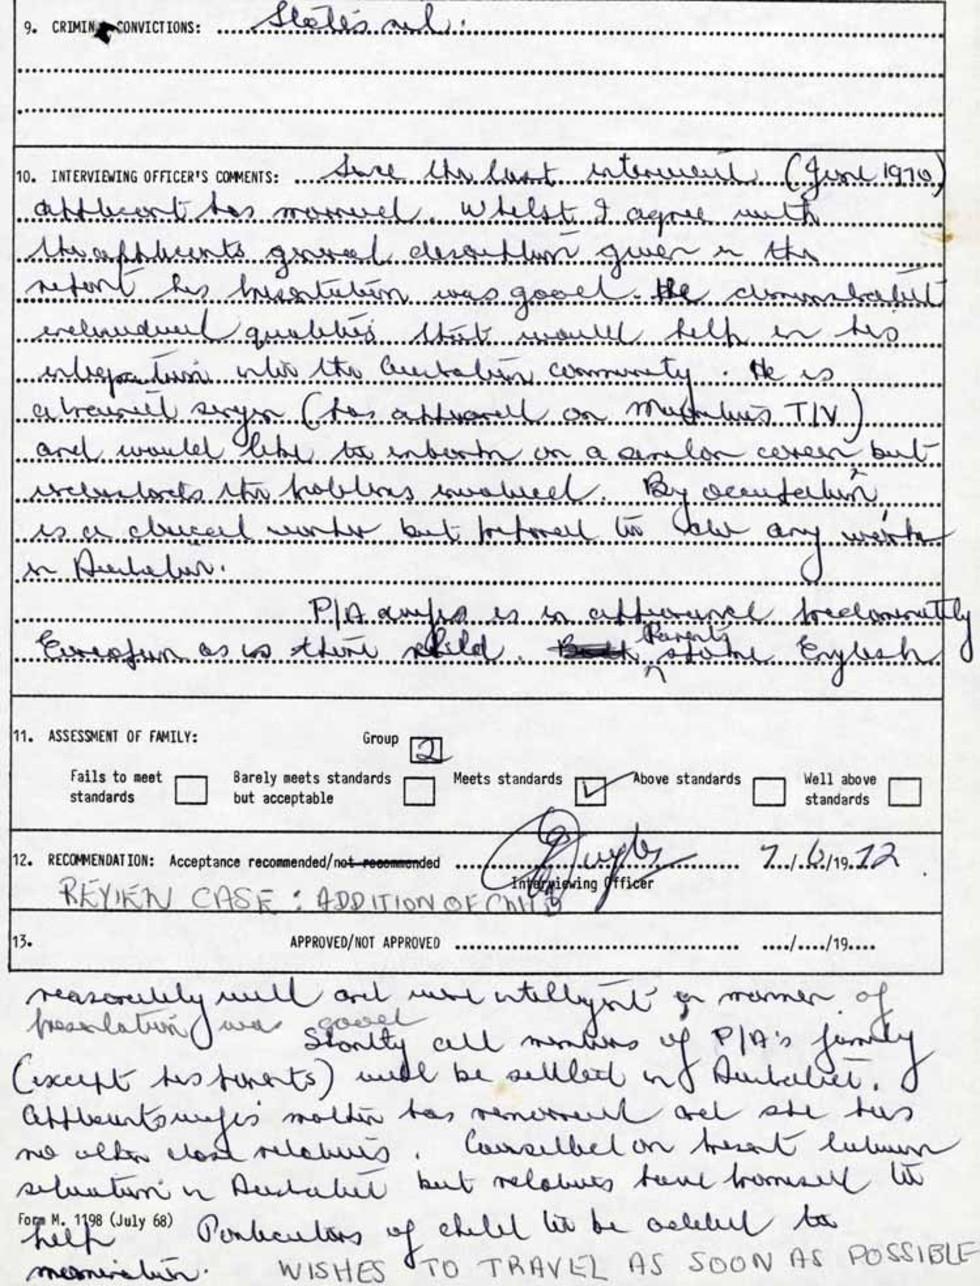 9. CRIMINAL CONVICTIONS: States nil.
10. INTERVIEWING OFFICER'S COMMENTS: Since the last interview (June 1970)
applicant has married. Whilst I agree with
the applicants general description given in the
report his presentation was good. He demonstrated
individual qualities that would help in his
integration into the Australian community. He is
a trained singer (has appeared on Mauritius T/V)
and would like to embark on a similar career but
understands the problems involved. By occupation
is a clerical worker but prepared to do any work
in Australia.
P/A & wife is in appearance predominately
European as is their child. Parents spoke English
11. ASSESSMENT OF FAMILY: Group 2
Fails to meet standards Barely meets standards but acceptable Meets standards ✓ Above standards Well above standards
12. RECOMMENDATION: Acceptance recommended/not recommended 7/6/1972
Interviewing Officer
REVIEW CASE : ADDITION OF CHILD
13. APPROVED/NOT APPROVED ..../..../19....
reasonably well and were intelligent & manner of
presentation was good
Shortly all members of P/A's family
(except his parents) will be settled in Australia.
Applicants wife's mother has remarried and she has
no other close relatives. Counselled on present labour
situation in Australia but relatives have promised to
Form M. 1198 (July 68)
help Particulars of child to be added to
nomination. WISHES TO TRAVEL AS SOON AS POSSIBLE